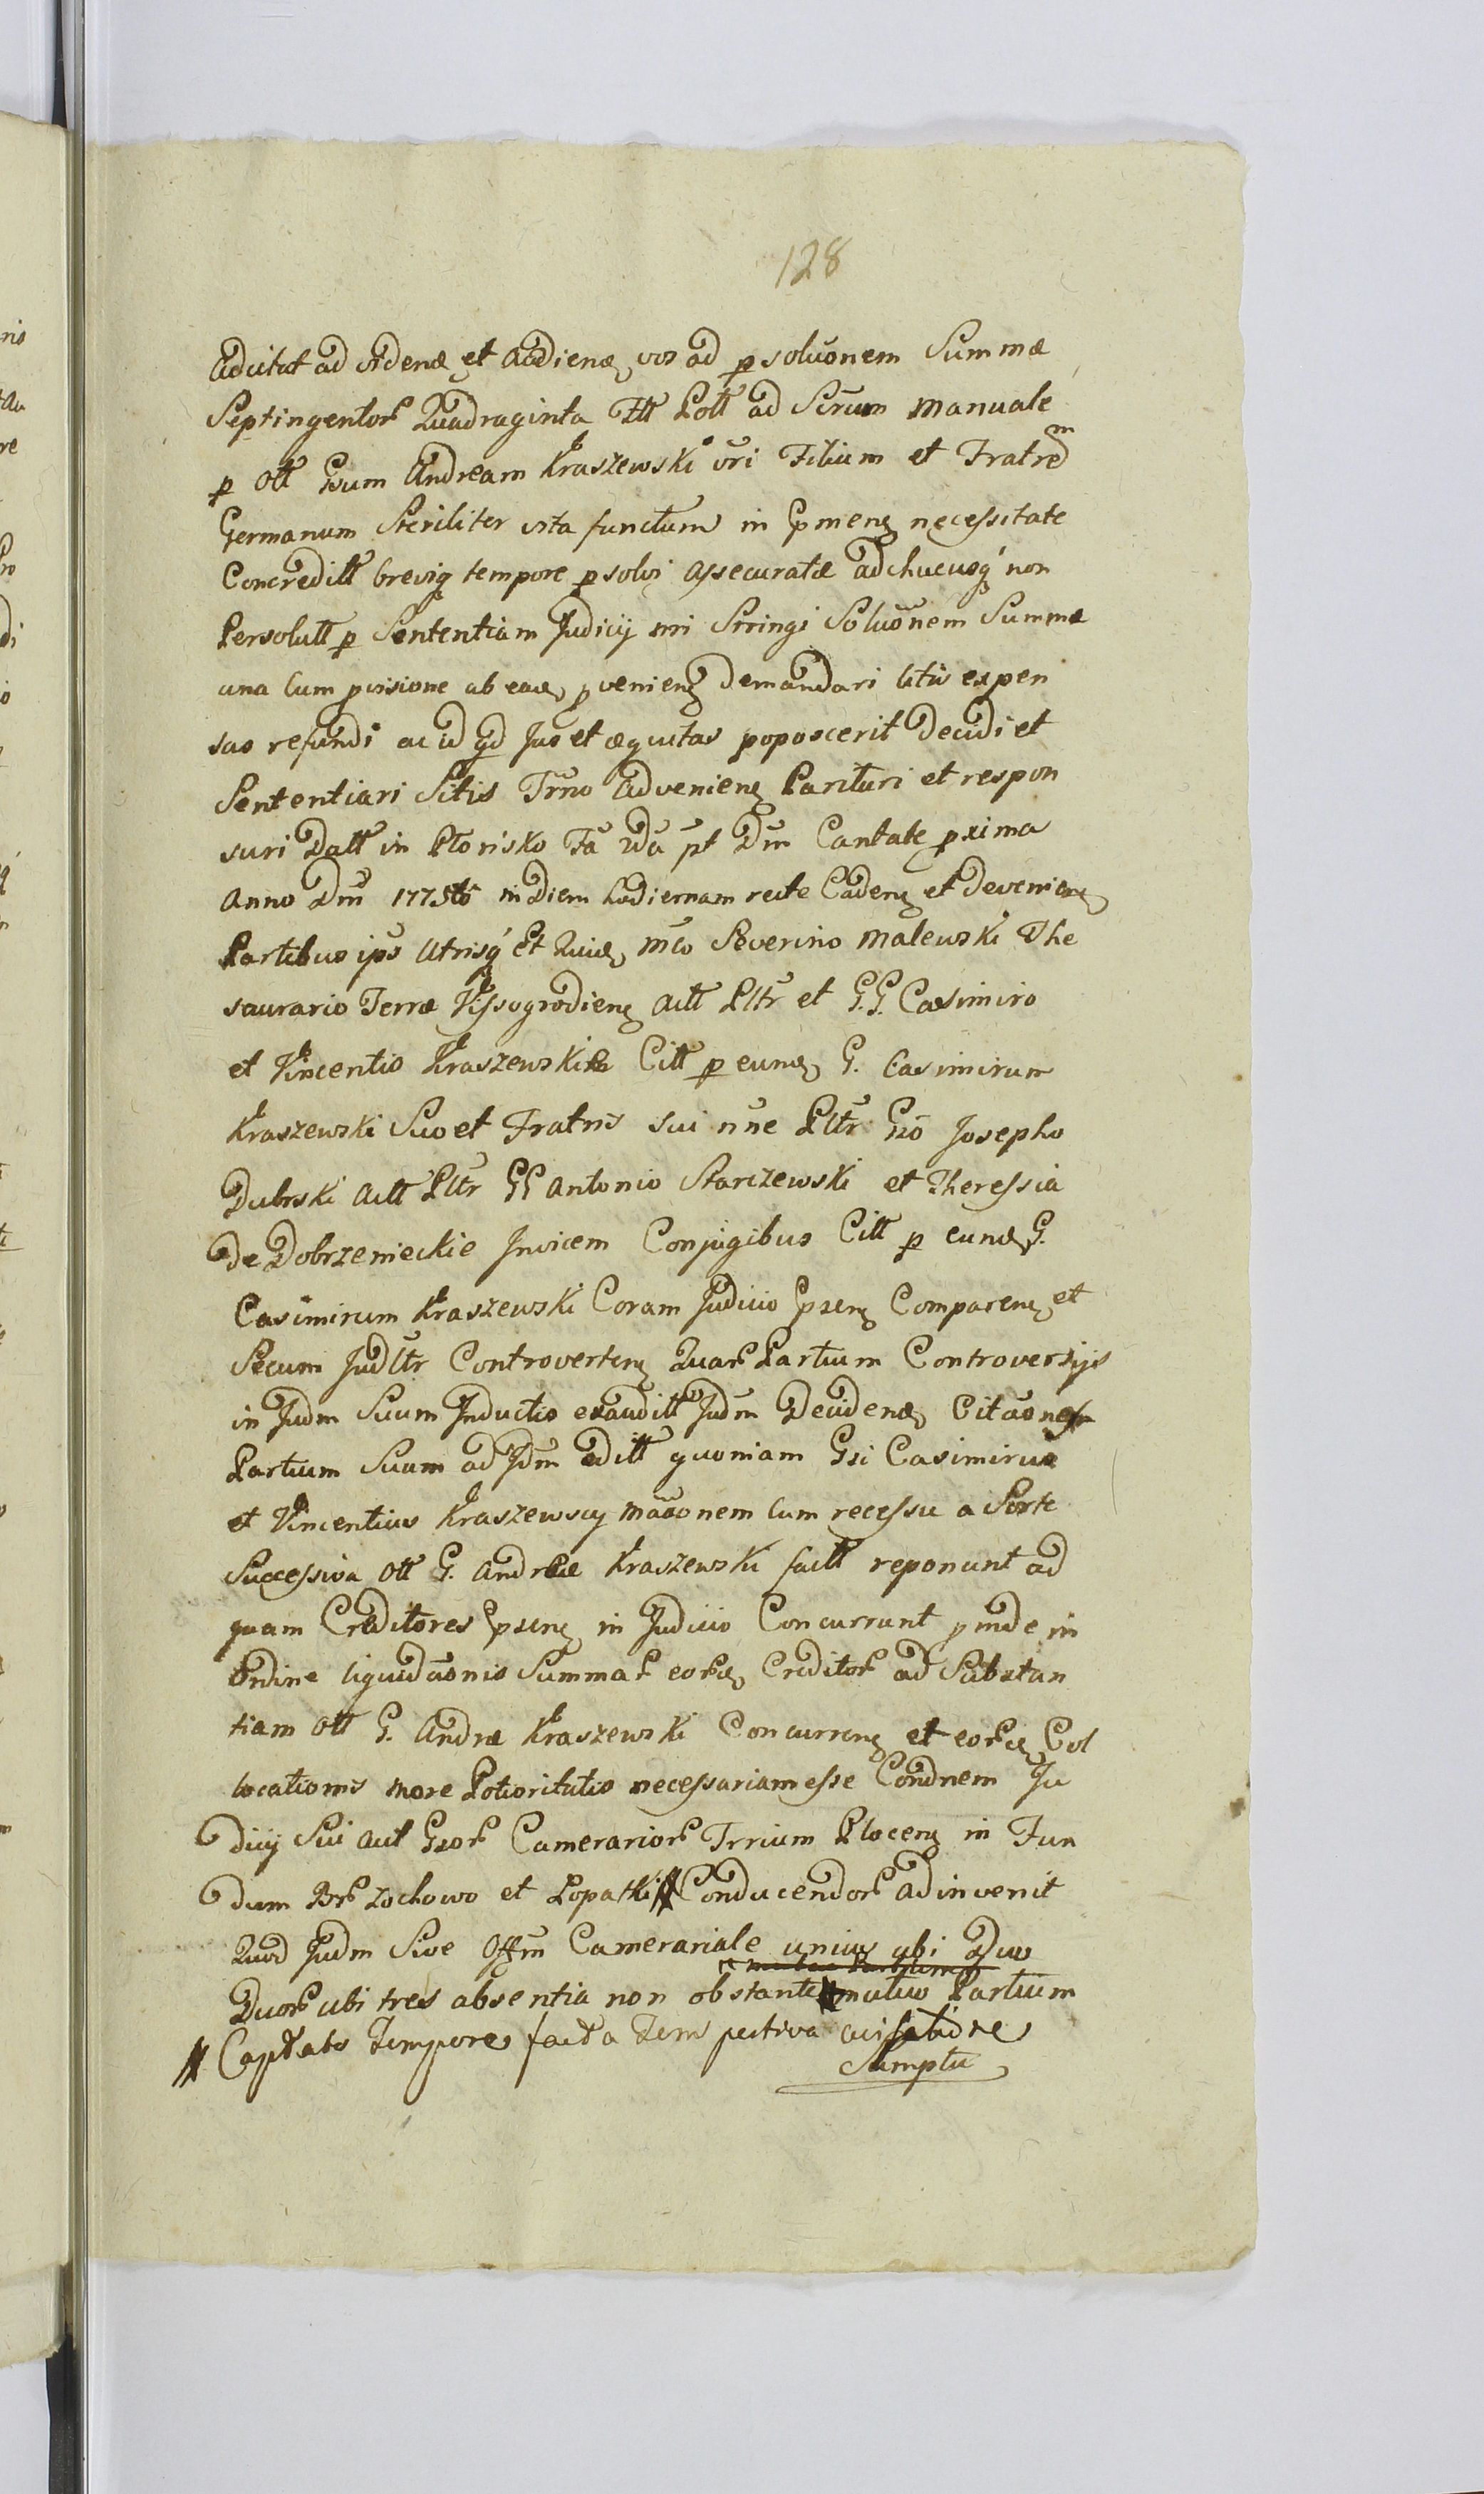 128
Adcitat ad vidend et audiend vos ad p solvonem Summæ
Septingentor Quadraginta Fll Poll ad Scrum manuale
p oll Gsum Andream Kraszewski vri Filium et Fratrem
Germanum Steriliter vita functum in pmenz necessitate
Concreditt breviq tempore p solvi assecuratæ adhucusq non
Persolutt p Sententiam Judicij nri Stringi Solvonem Summæ
una cum pvisione ab eade pvenienz demandari litis expen
sas refundi ac id qd Jus et æquitas poposcerit Decidi et
Sententiari Sitis Trno advenienz Parituri et respon
suri Datt in Płonsko Fa 2da pt Dm Cantate pxima
Anno Dni 1775to in Diem hodiernam recte Cadenz et devenienz
Partibus ips utrisq et quid Mco Severino Malewski The
saurario Terræ Vissogrodienz actt Pltr et G.G. Casimiro
et Vincentio Kraszewskie Citt p eund G. Casimirum
Kraszewski Suo et Fratris sui nne Pltr Gso Josepho
Dubrski actt Pltr GG Antonio Starczewski et Theressia
de Dobrzenieckie Invicem Conjugibus Citt p eund G.
Casimirum Kraszewski Coram Judicio psenz Comparenz et
Secum Judltr Controvertenz Quar Partium Controversijs
in Judm Suum Inductis exauditt Judm Decidend Citaones
Partium Suum ad Jdm editt quoniam Gsi Casimirus
et Vincentius Kraszewscy maaonem Cum recessu a Sorte
Successiva oll G. Andreæ Kraszewski factt reponunt ad
quam Creditores psenz in Judicio Concurrunt pinde in
ordine liquidaonis Summar eord Creditor ad Substan
tiam oll G. Andræ Kraszewski Concurrenz et eord Col
locationis more Potioritatis necessariam esse Condnem Ju
dicij Sui aut Gsor Camerarior Trrium Plocenz in Fun
dum Bnr Zochowo et Łopatki # Conducendor adinvenit
Quod Judm Sive Offm Camerariale unius ubi Duo
Duor ubi tres absentia non obstante mutuo Partium
# Captato Tempore facta Tempestiva
Sumptu